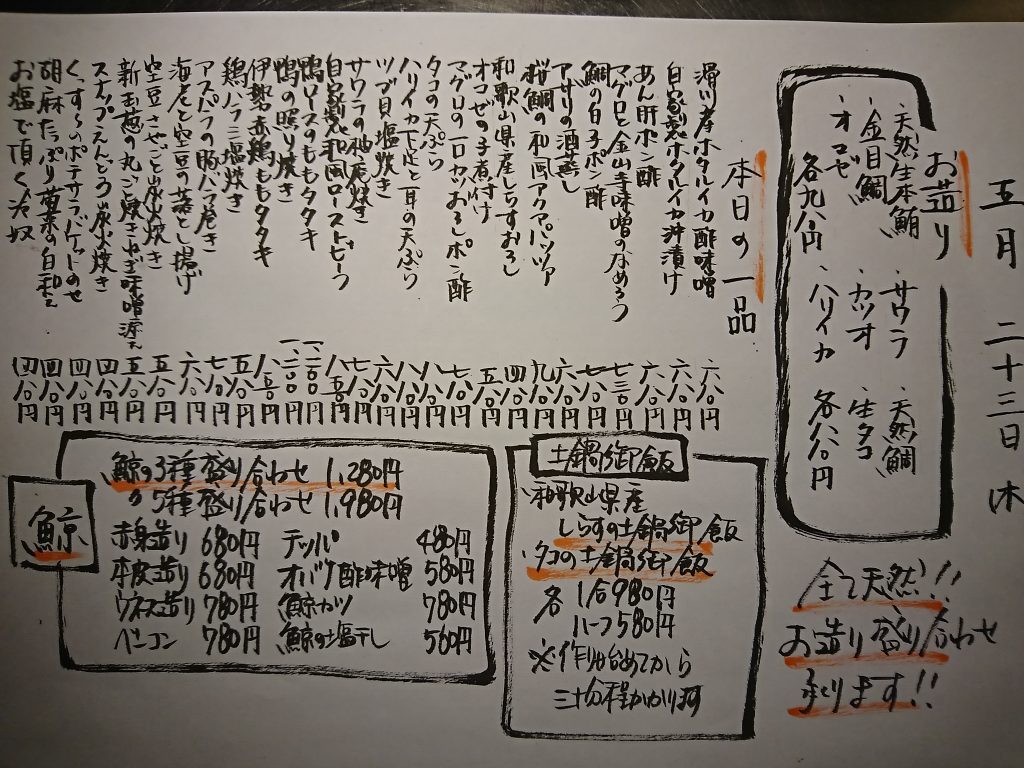 五月 二十三日 木
お造り
・天然生本鮪
・金目鯛
・オコゼ
各九八〇円
・サワラ
・カツオ
・ハリイカ
・天然鯛
・生タコ
各八八〇円
全て天然!!
お造り盛り合わせ
承ります!!
本日の一品
滑川産ホタルイカ酢味噌 六八〇円
自家製ホタルイカ沖漬け 六八〇円
あん肝ポン酢 六八〇円
マグロと金山寺味噌のなめろう 七三〇円
鯛の白子ポン酢 七八〇円
アサリの酒蒸し 六八〇円
桜鯛の和風アクアパッツァ 九八〇円
和歌山県産しらすおろし 四八〇円
オコゼの子煮付け 五八〇円
マグロの一口カツおろしポン酢 七八〇円
タコの天ぷら 八八〇円
ハリイカ下足と耳の天ぷら
ツブ貝塩焼き
サワラの柚庵焼き
自家製和風ローストビーフ
鴨ロースのももタタキ
鴨の照り焼き
伊勢赤鶏ももタタキ
鶏ハラミ塩焼き
アスパラの豚バラ巻き
海老と空豆の蒸し揚げ
空豆さやごと炭火焼き
新玉葱の丸ごと焼きねぎ味噌添え 五八〇円
スナップえんどう炭火焼き 四八〇円
くんすもののポテサラバゲットのせ 四八〇円
胡麻たっぷり菊菜の白和え 四八〇円
お塩で頂く冷奴 四八〇円
土鍋御飯
・和歌山県産
しらすの土鍋御飯
・タコの土鍋御飯
各 1合980円
ハーフ580円
※作り始めてから
三十分程かかります
鯨
鯨の3種盛り合わせ 1,280円
〃 5種盛り合わせ 1,980円
赤身造り 680円 テッパ 480円
本皮造り 680円 オバケ酢味噌 580円
ウネス造り 780円 鯨カツ 780円
ベーコン 780円 鯨の塩干し 560円